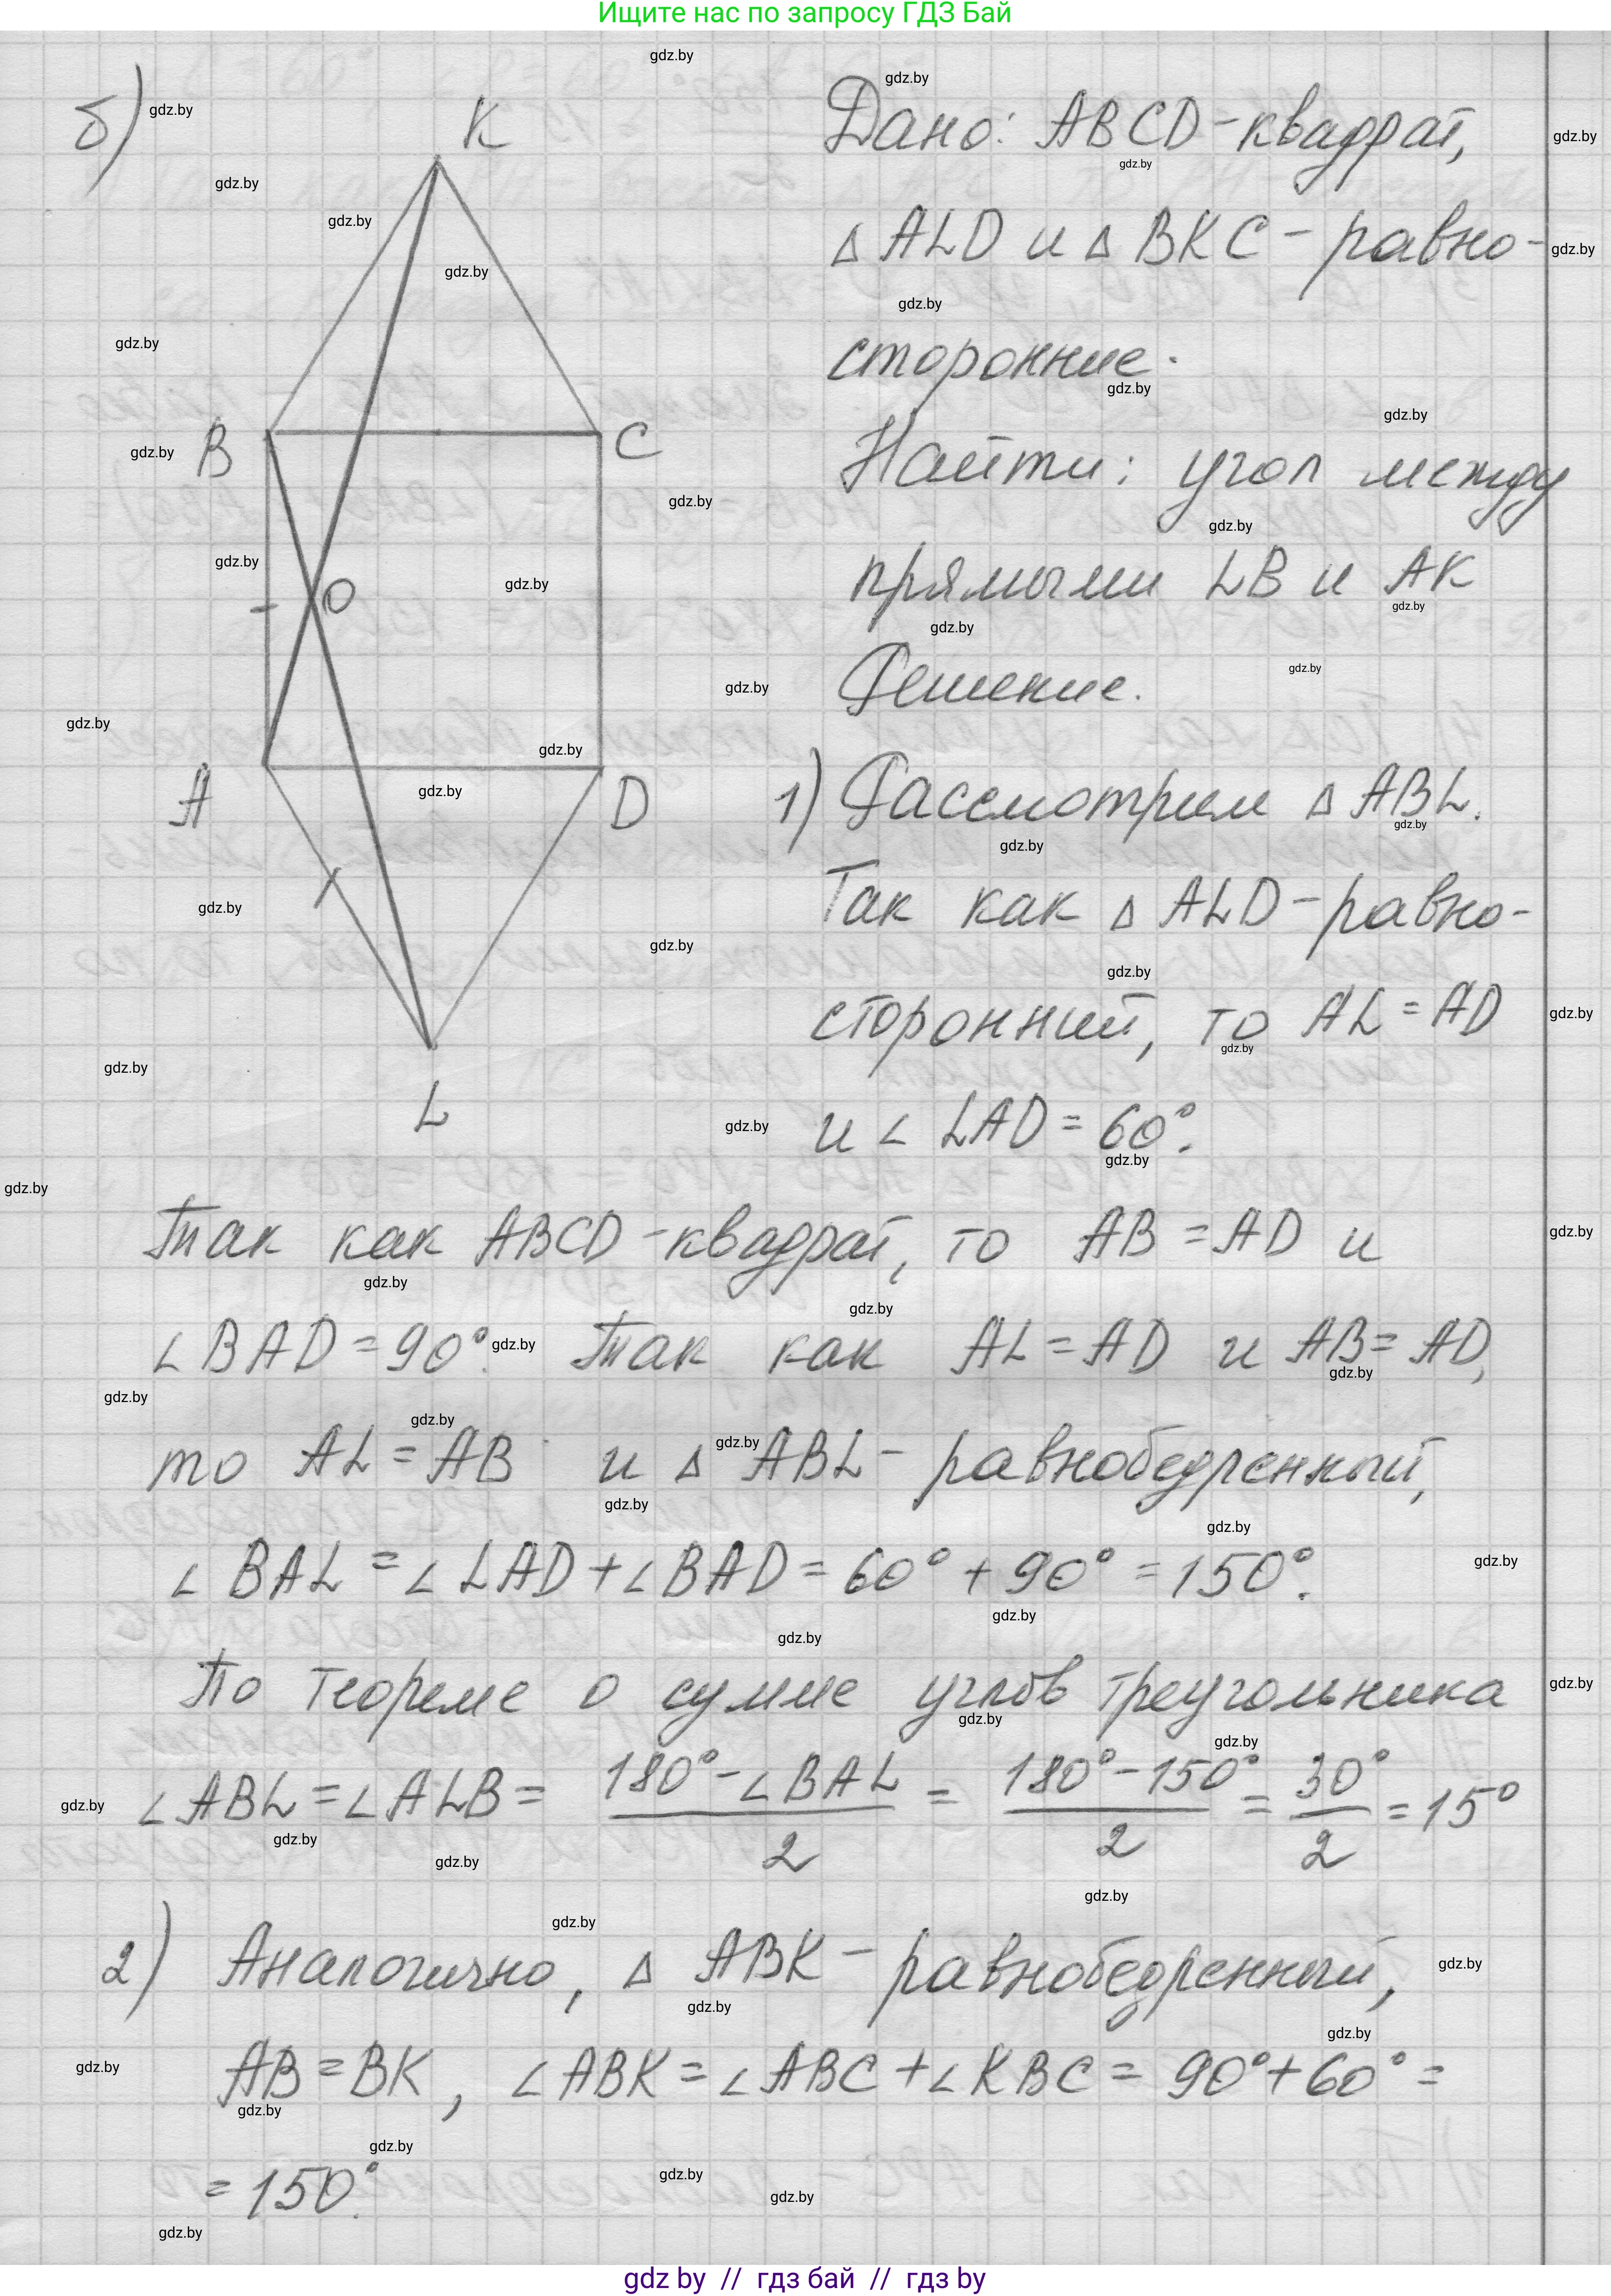 Ищите нас по запросу ГДЗ Бай
б)
K
B
C
O
A
D
L
Дано: ABCD - квадрат,
△ ALD и △ BKC - равно-
сторонние.
Найти: угол между
прямыми LB и AK
Решение.
1) Рассмотрим △ ABL.
Так как △ ALD - равно-
сторонний, то AL = AD
и ∠ LAD = 60°.
Так как ABCD - квадрат, то AB = AD и
∠ BAD = 90°. Так как AL = AD и AB = AD,
то AL = AB и △ ABL - равнобедренный,
∠ BAL = ∠ LAD + ∠ BAD = 60° + 90° = 150°.
По теореме о сумме углов треугольника
∠ ABL = ∠ ALB = (180° - ∠ BAL)/2 = (180° - 150°)/2 = 30°/2 = 15°
2) Аналогично, △ ABK - равнобедренный,
AB = BK, ∠ ABK = ∠ ABC + ∠ KBC = 90° + 60° =
= 150°.
gdz by // гдз бай // гдз by